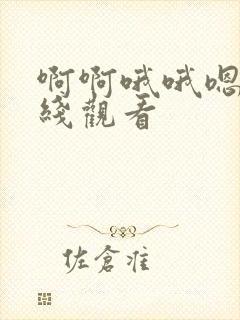 啊啊哦哦嗯
綫觀看
佐倉准